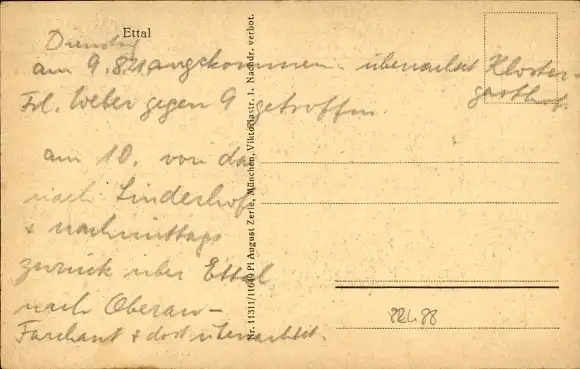 Ettal
Dienstag
am 9. angekommen. übernachtet Kloster-
gasthof
Frl. Weber gegen 9 getroffen.
am 10. von da
nach Linderhof
+ nachmittags
zurück über Ettal
nach Oberau-
Farchant + dort übernachtet.
Nr. 11311/11640 Pi August Zerle, München, Viktoriastr. 1. Nachdr. verbot.